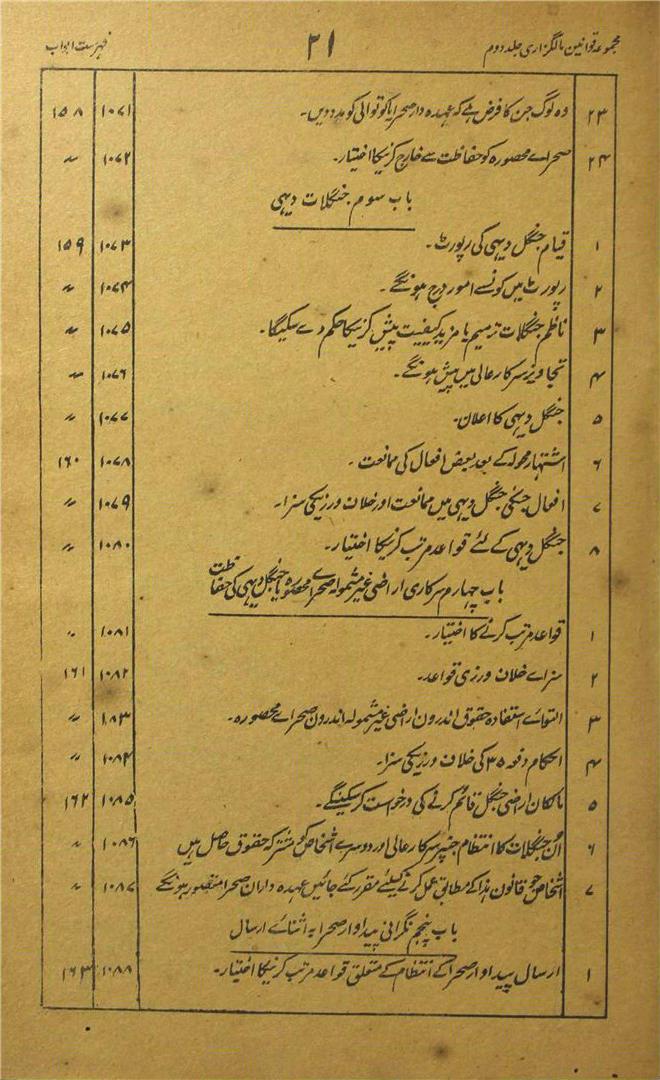 مجموعہ قوانین مالگزاری جلد دوم ۲۱ فہرست ابواب
۲۳ وہ لوگ جن کا فرض ہے کہ عہدہ دار صحرا یا کوتوالی کو مدد دیں۔ ۱۰۷۱ ۱۵۸
۲۴ صحراے محصورہ کو حفاظت سے خارج کرنیکا اختیار۔ ۱۰۷۲ 〃
باب سوم جنگلات دیہی
۱ قیام جنگل دیہی کی رپورٹ۔ ۱۰۷۳ ۱۵۹
۲ رپورٹ میں کونسے امور درج ہونگے۔ ۱۰۷۴ 〃
۳ ناظم جنگلات ترمیم یا مزید کیفیت پیش کرنیکا حکم دے سکیگا۔ ۱۰۷۵ 〃
۴ تجاویز سرکار عالی میں پیش ہونگے۔ ۱۰۷۶ 〃
۵ جنگل دیہی کا اعلان۔ ۱۰۷۷ 〃
۶ اشتہار محولہ کے بعد بعض افعال کی ممانعت۔ ۱۰۷۸ ۱۶۰
۷ افعال جنکی جنگل دیہی میں ممانعت اور خلاف ورزیکی سزا۔ ۱۰۷۹ 〃
۸ جنگل دیہی کے لئے قواعد مرتب کرنیکا اختیار۔ ۱۰۸۰ 〃
باب چہارم سرکاری اراضی غیر مشمولہ صحراے محصورہ یا جنگل دیہی کی حفاظت
۱ قواعد مرتب کرنے کا اختیار۔ ۱۰۸۱ 〃
۲ سزاے خلاف ورزی قواعد۔ ۱۰۸۲ ۱۶۱
۳ التواے استفادہ حقوق اندرون اراضی غیر مشمولہ اندرون صحراے محصورہ۔ ۱۰۸۳ 〃
۴ احکام دفعہ ۳۵ کی خلاف ورزیکی سزا۔ ۱۰۸۴ 〃
۵ مالکان اراضی جنگل قائم کرنے کی درخواست کرسکینگے۔ ۱۰۸۵ ۱۶۲
۶ اُن جنگلات کا انتظام جنپر سرکار عالی اور دوسرے اشخاص کو مشترکہ حقوق حاصل ہیں ۱۰۸۶ 〃
۷ اشخاص جو قانون ہذا کے مطابق عمل کرنے کیلئے مقرر کئے جائیں عہدہ داران صحرا متصور ہونگے ۱۰۸۷ 〃
باب پنجم نگرانی پیداوار صحرا بہ اثنائے ارسال
۱ ارسال پیداوار صحرا کے انتظام کے متعلق قواعد مرتب کرنیکا اختیار۔ ۱۰۸۸ ۱۶۳